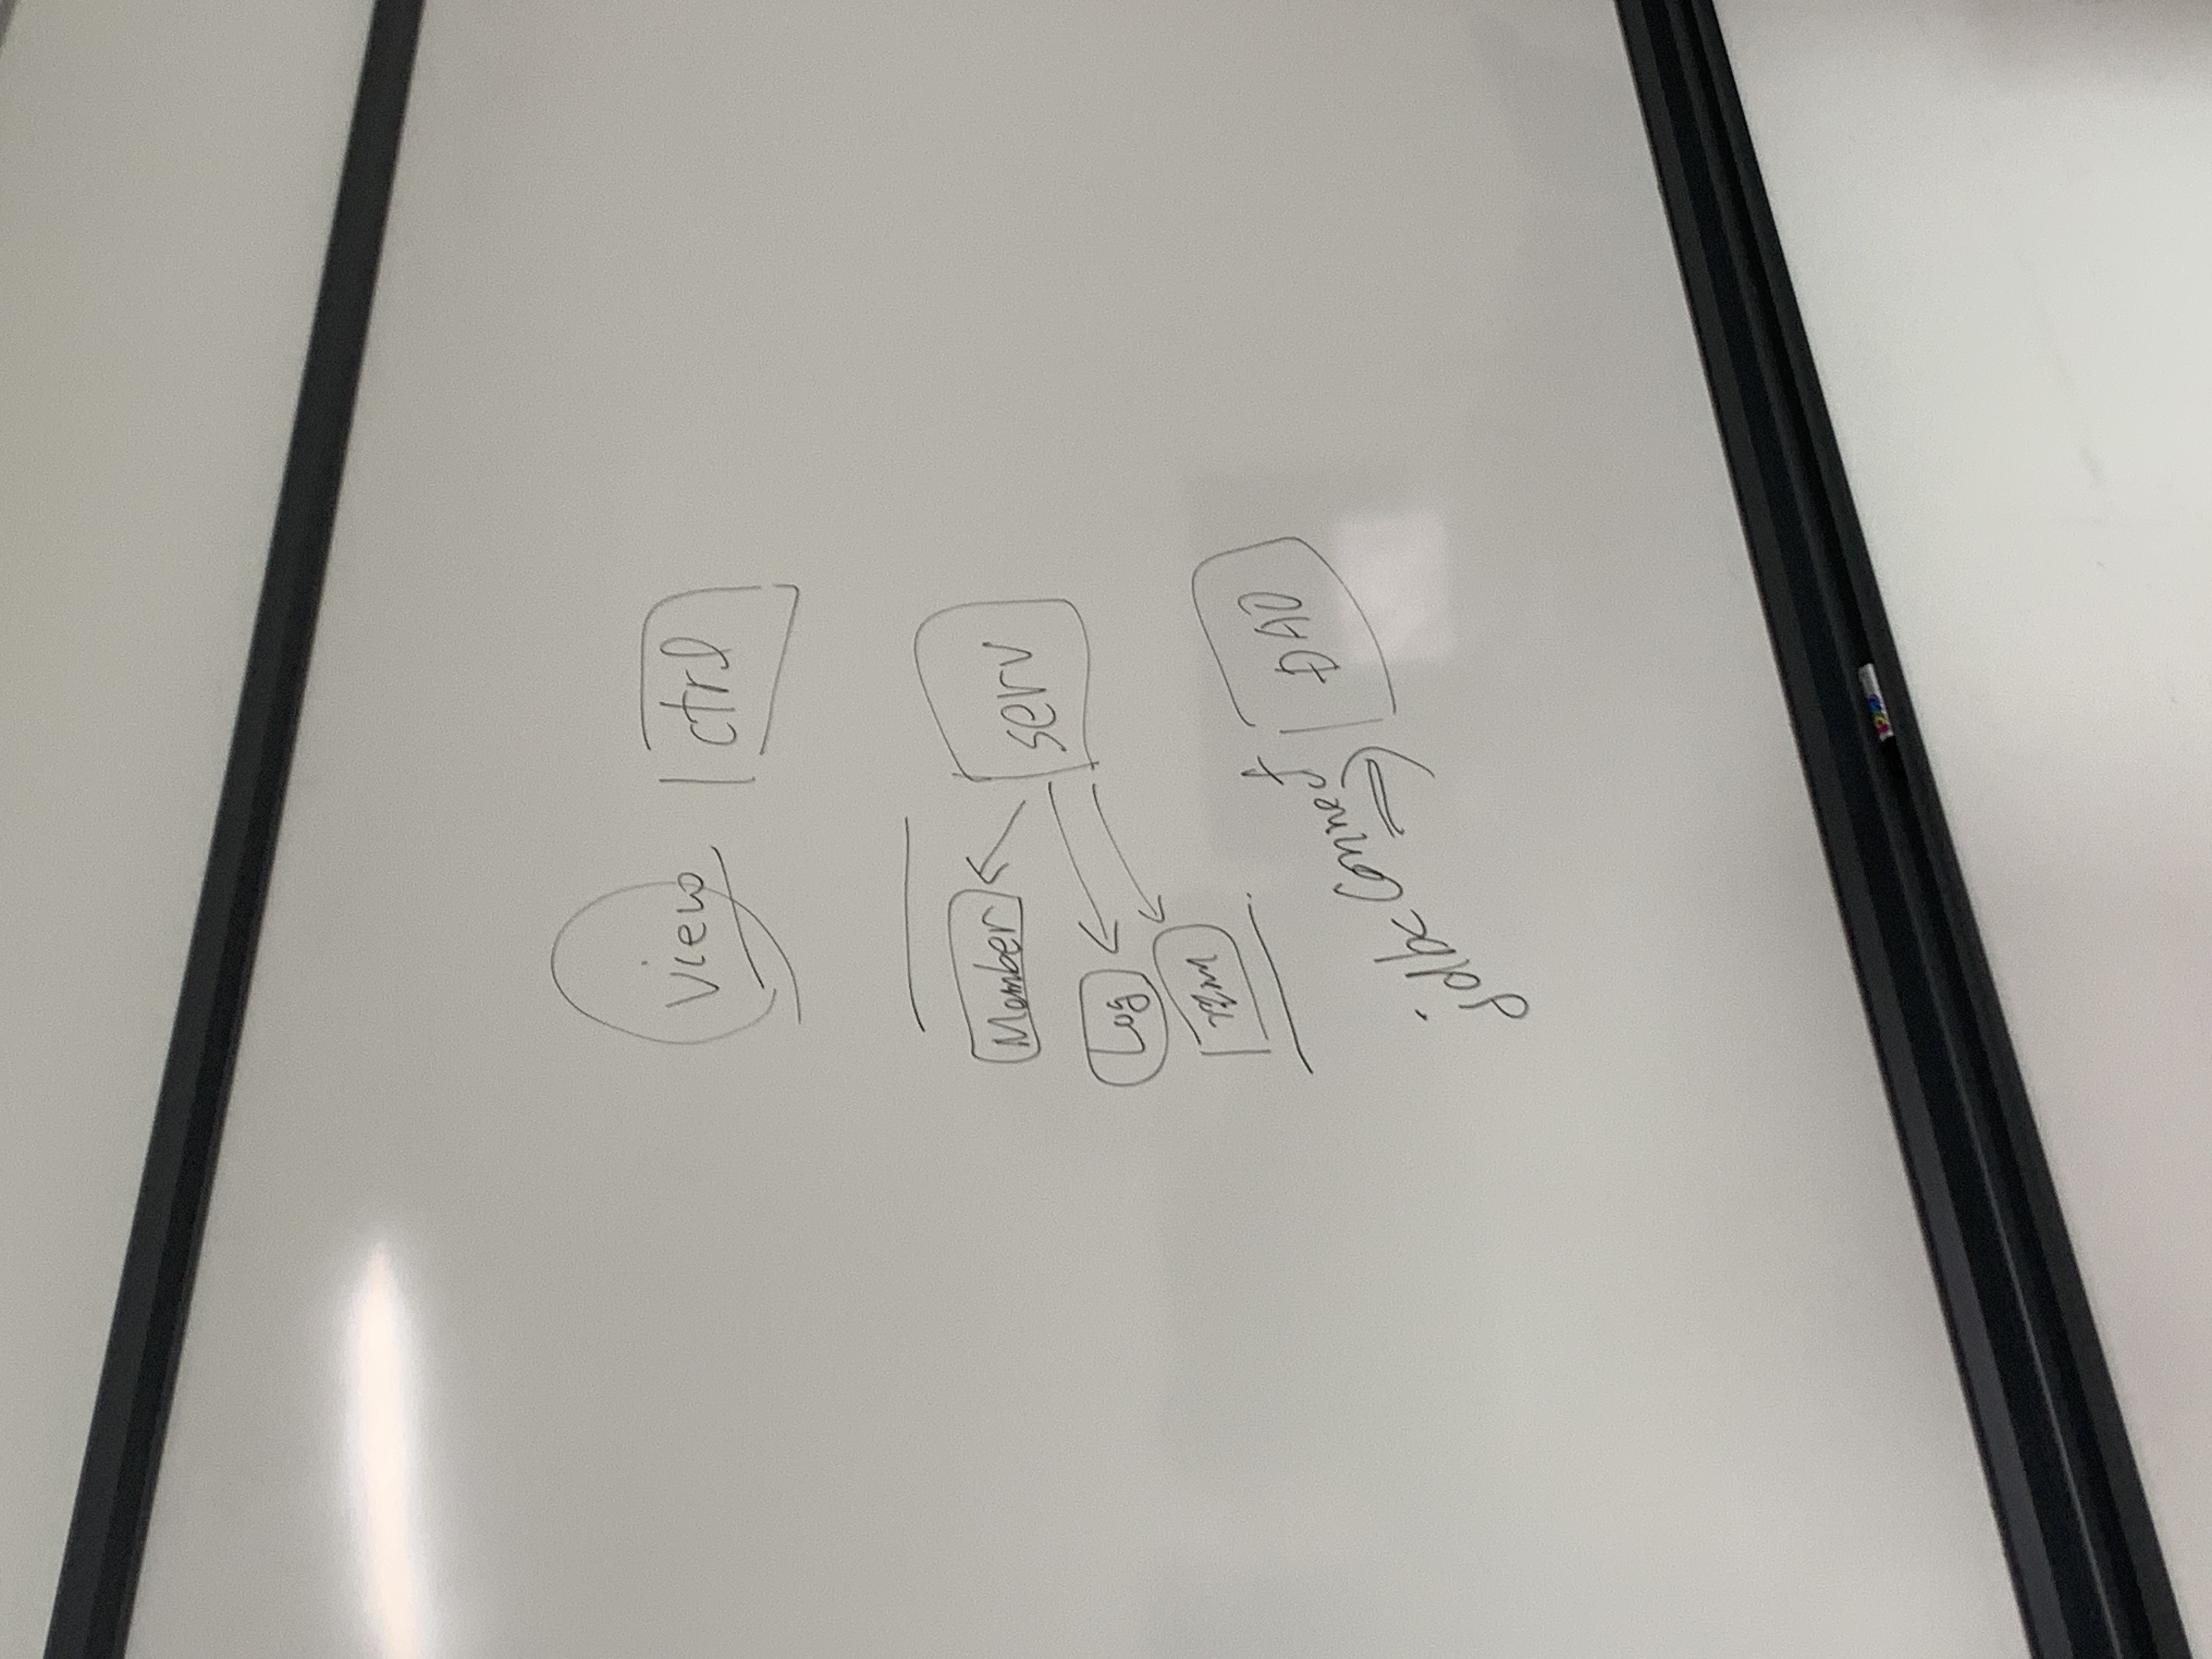 View ctrl
Member serv
Log
DAO
jdbc Connect